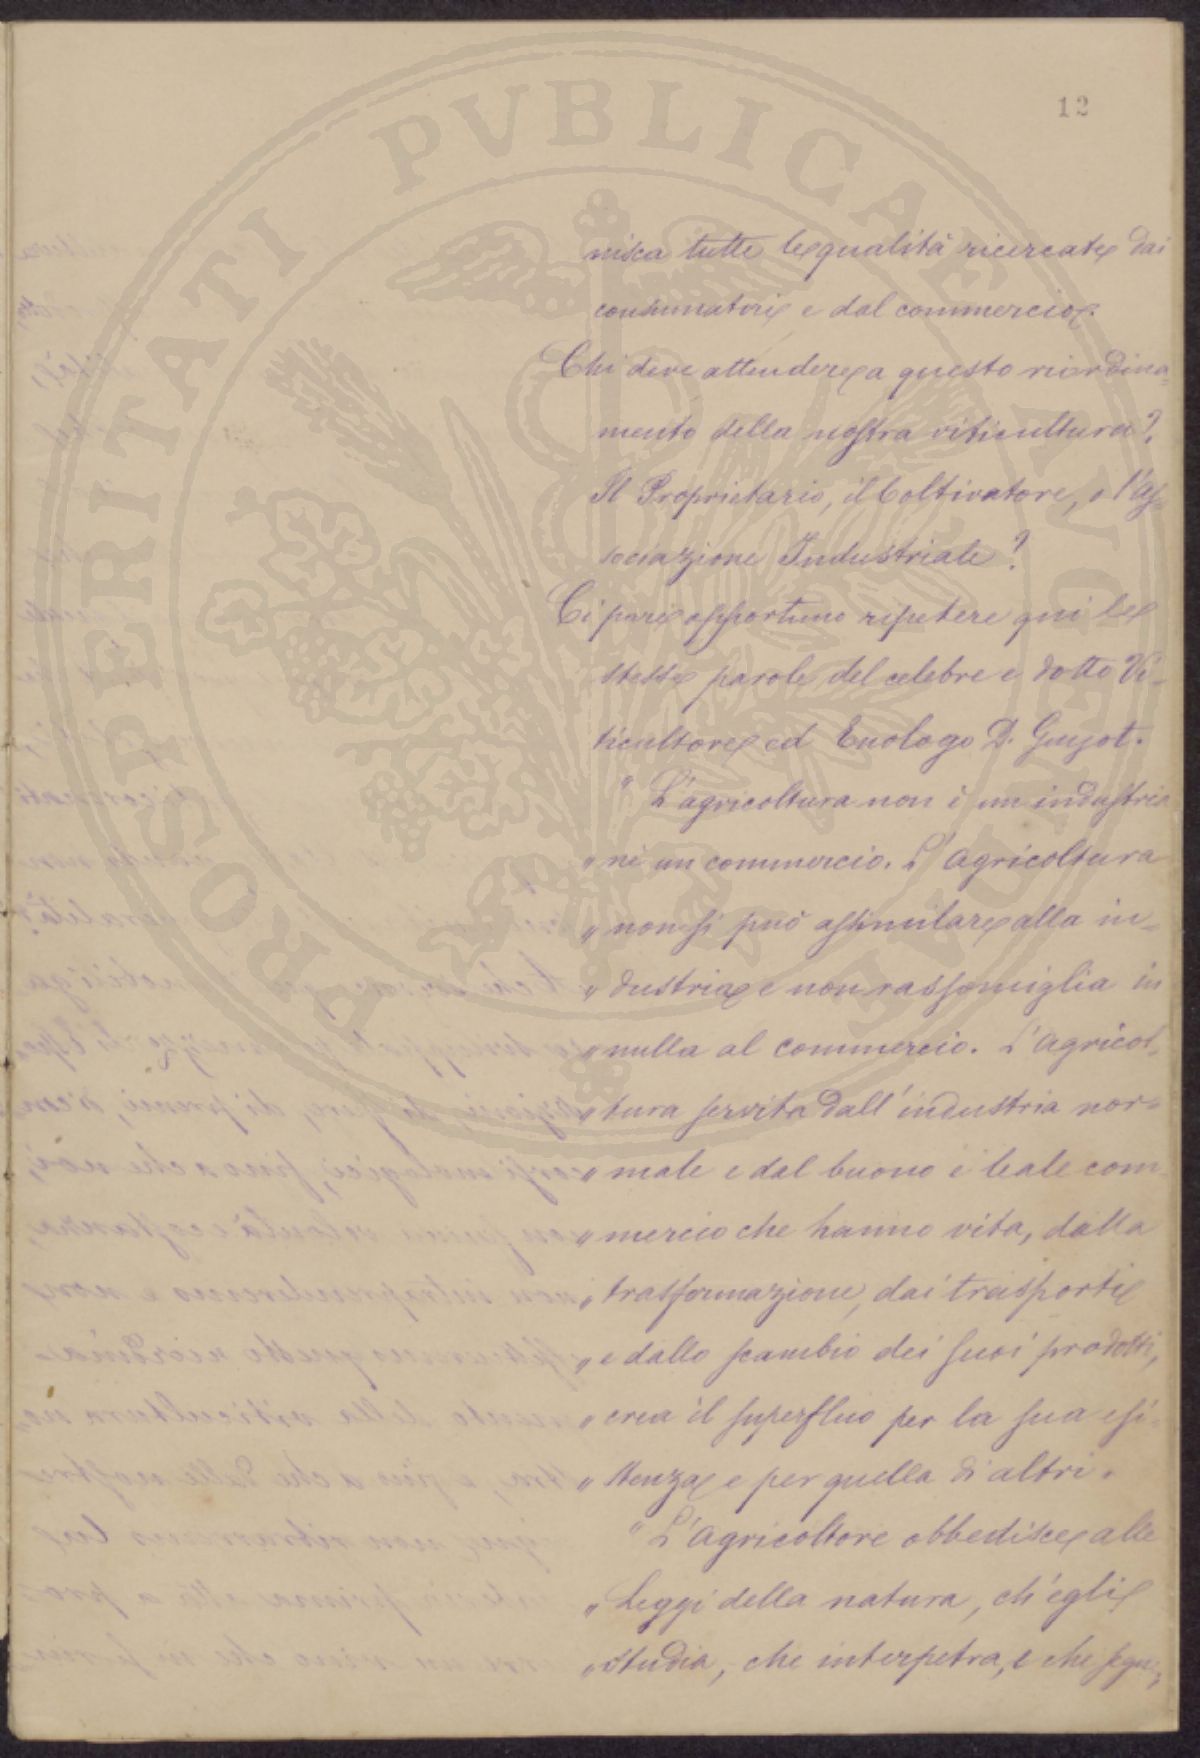 PROSPERITATI PVBLICAE AVGENDAE
12
nisca tutte le qualità ricercate dai
consumatori e dal commercio.
Chi deve attendere a questo riordina=
mento della nostra viticultura?
Il Proprietario, il Coltivatore, o l'As-
sociazione Industriale?
Ci pare opportuno ripetere qui le
stesse parole del celebre e dotto Vi-
ticultore ed Enologo D. Guyot.
" L'agricoltura non è un industria
" nè un commercio. L'agricoltura
" non si può assimilare alla in-
" dustria e non rassomiglia in
" nulla al commercio. L'agricol-
" tura servita dall'industria nor-
" male e dal buono e leale com-
" mercio che hanno vita, dalla
" trasformazione, dai trasporti
" e dallo scambio dei suoi prodotti,
" crea il superfluo per la sua esi-
" stenza e per quella di altri.
" L'agricoltore obbedisce alle
" Leggi della natura, ch'egli
" studia, che interpetra, e che segu-